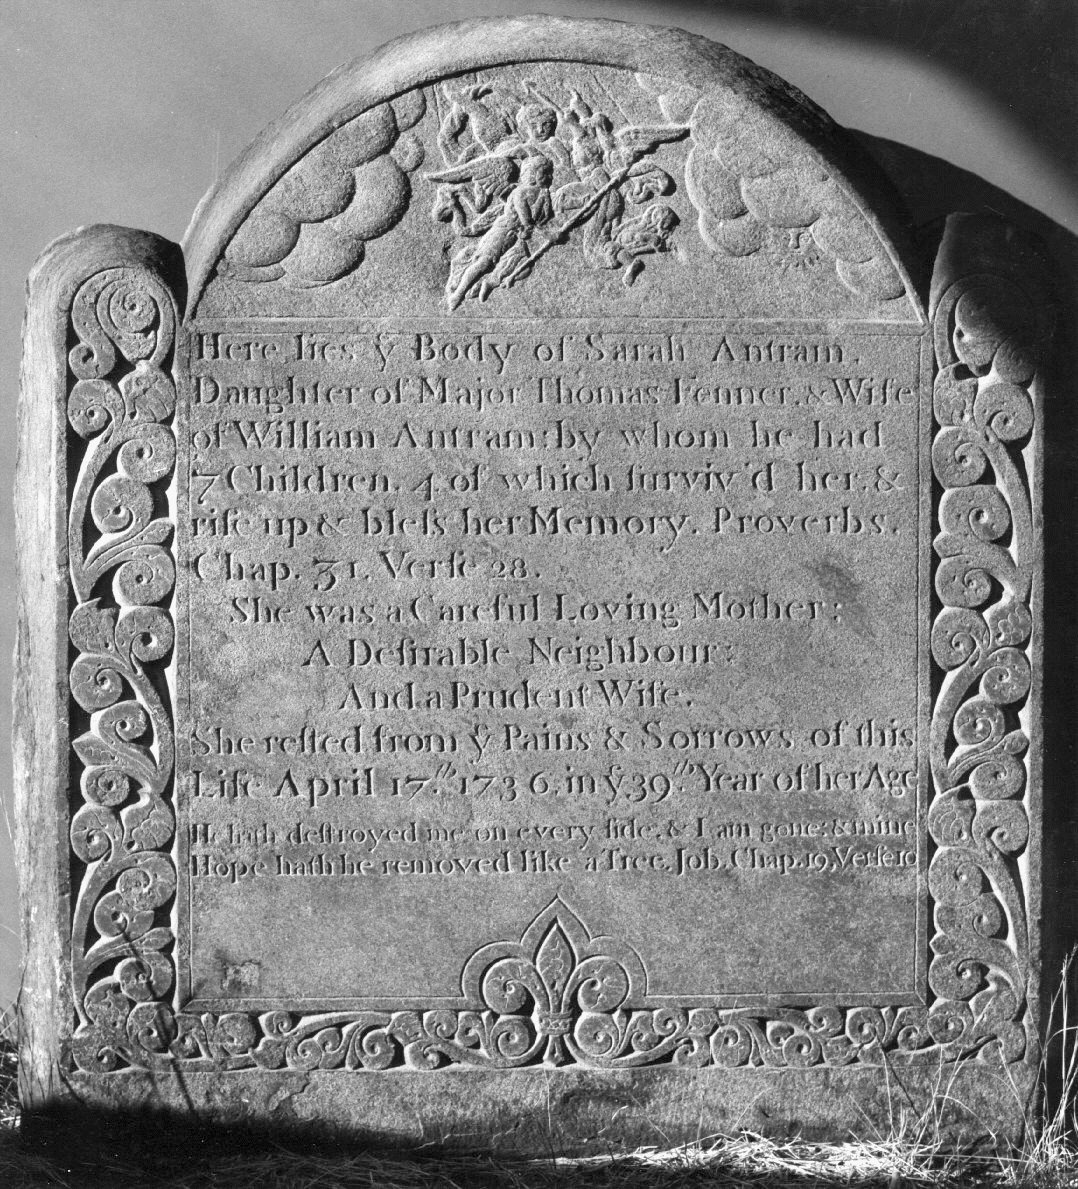 Here lies yͤ Body of Sarah Antram,
Daughter of Major Thomas Fenner, & Wife
of William Antram: by whom he had
7 Children, 4 of which ſurviv'd her, &
riſe up & bleſs her Memory. Proverbs,
Chap. 31. Verſe 28.
She was a Careful Loving Mother;
A Deſirable Neighbour;
And a Prudent Wife.
She reſted from yͤ Pains & Sorrows of this
Life April 17.th 1736. in yͤ 39th Year of her Age
He hath deſtroyed me on every ſide, & I am gone: & mine
Hope hath he removed like a Tree. Job. Chap. 19. Verſe 10